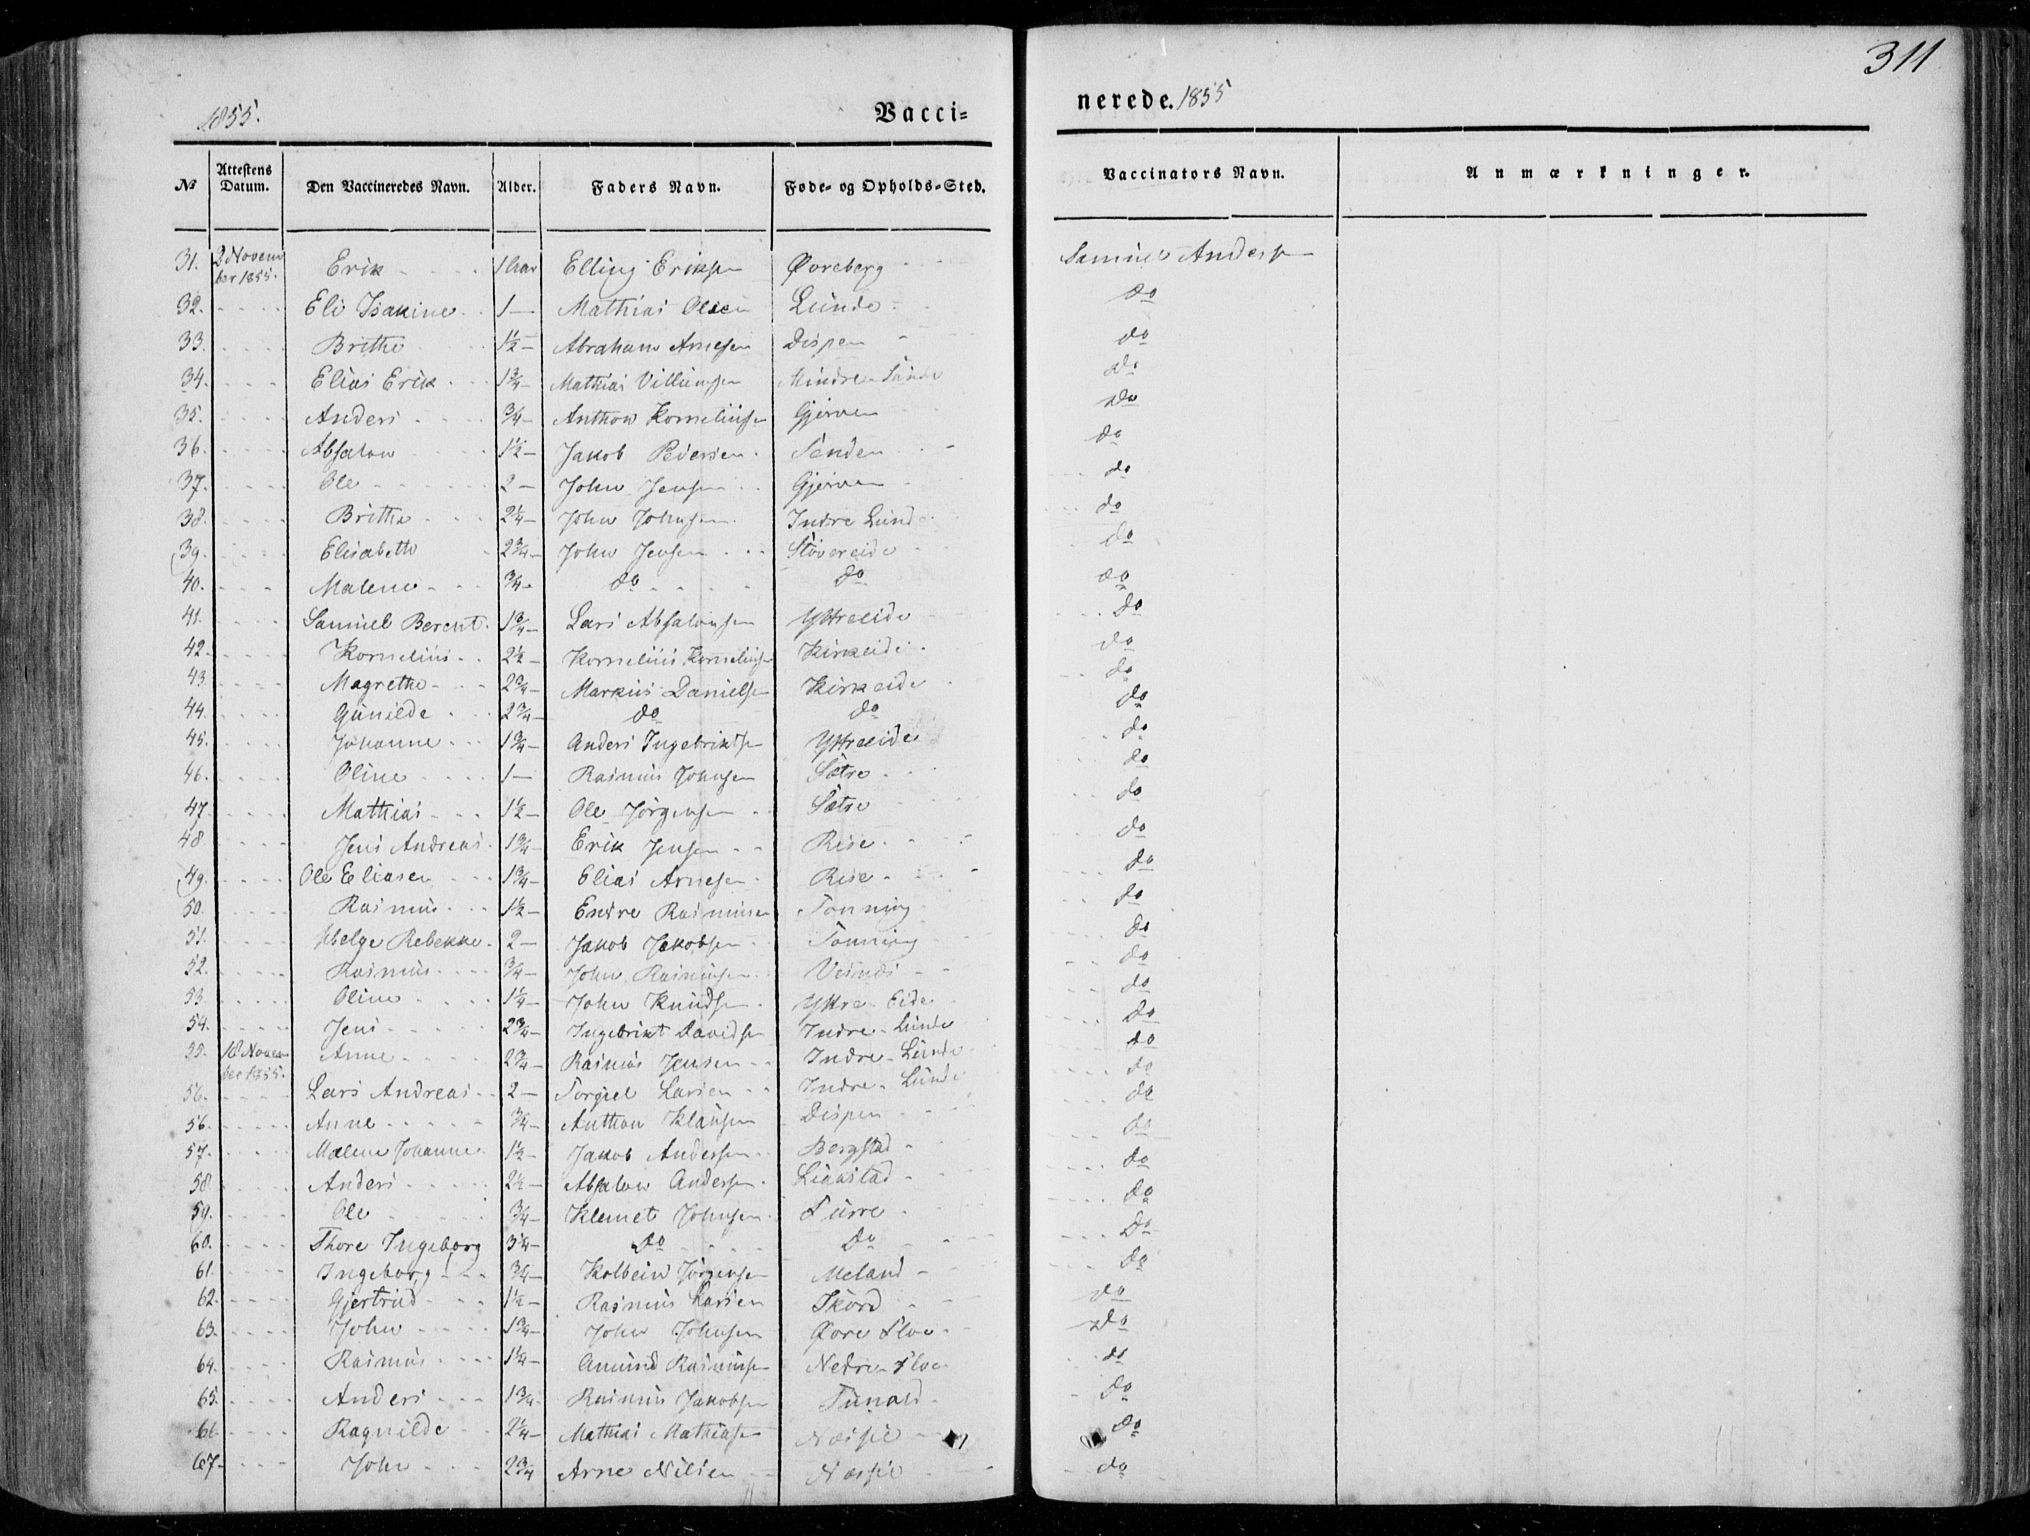 311
1855. Vacci- nerede. 1855
№ Attestens Datum. Den Vaccineredes Navn. Alder. Faders Navn. Føde- og Opholds-Sted. Vaccinators Navn. Anmærkninger.
31. 2 November 1855. Erik 1 Aar Elling Eriksen Øvreberg Samuel Andersen
32. Eli Isakine 1 — Mathias Olsen Lunde do
33. Brithe 1½ — Abraham Arnesen Dispen do
34. Elias Erik 1¾ — Mathias Villumsen Mindre-Sunde do
35. Anders ¾ — Anthon Korneliusen Gjerven do
36. Absalon 1½ — Jakob Pedersen Sanden do
37. Ole 2 — John Jensen Gjerven do
38. Brithe 2¼ — John Johnsen Indre Lunde do
39. Elisabeth 2¾ — John Jensen Støvereide do
40. Malene ¾ — do do do
41. Samuel Berent 1¾ — Lars Absalonsen Yttreeide do
42. Kornelius 2½ — Kornelius Korneliusen Kirkeide do
43. Magrethe 2¾ — Markus Danielsen Kirkeide do
44. Gunilde 2¾ — do do do
45. Johanne 1¾ — Anders Ingebriktsen Yttreeide do
46. Oline 1 — Rasmus Johnsen Sætre do
47. Mathias 1½ — Ole Jørgensen Sætre do
48 Jens Andreas 1¾ — Erik Jensen Rise do
49. Ole Eliasen 1¾ — Elias Arnesen Rise do
50. Rasmus 1½ — Endre Rasmusen Tonning do
51. Helge Rebekke 2 — Jakob Jakobsen Tonning do
52. Rasmus ¾ — John Rasmusen Visnes do
53. Oline 1¼ — John Knudsen Yttre-Eide do
54. Jens 2¾ — Ingebrikt Davidsen Indre-Lunde do
55. 18 November 1855. Anne 2¾ — Rasmus Jensen Indre-Lunde do
56. Lars Andreas 2 — Torgiel Larsen Indre-Lunde do
56. Anne ¾ — Anthon Klausen Dispen do
57. Malene Johanne 1½ — Jakob Andersen Bergstad do
58 Anders 2½ — Absalon Andersen do
59. Ole ¾ — Klemet Johnsen Furre do
60. Thore Ingeborg 3¼ — Do Do do
61. Ingeborg ¾ — Kolbein Jørgensen Meland Do
62. Gjertrud 1½ — Rasmus Larsen Skord do
63. John 1¾ — John Johnsen Øvre Floe do
64. Rasmus 1¼ — Amund Rasmusen Nedre-Floe do
65. Anders 1¾ Rasmus Jakobsen do
66 Ragnilde 2¼ — Mathias Mathiasen do
67. John 2¾ Arne Nilsen do